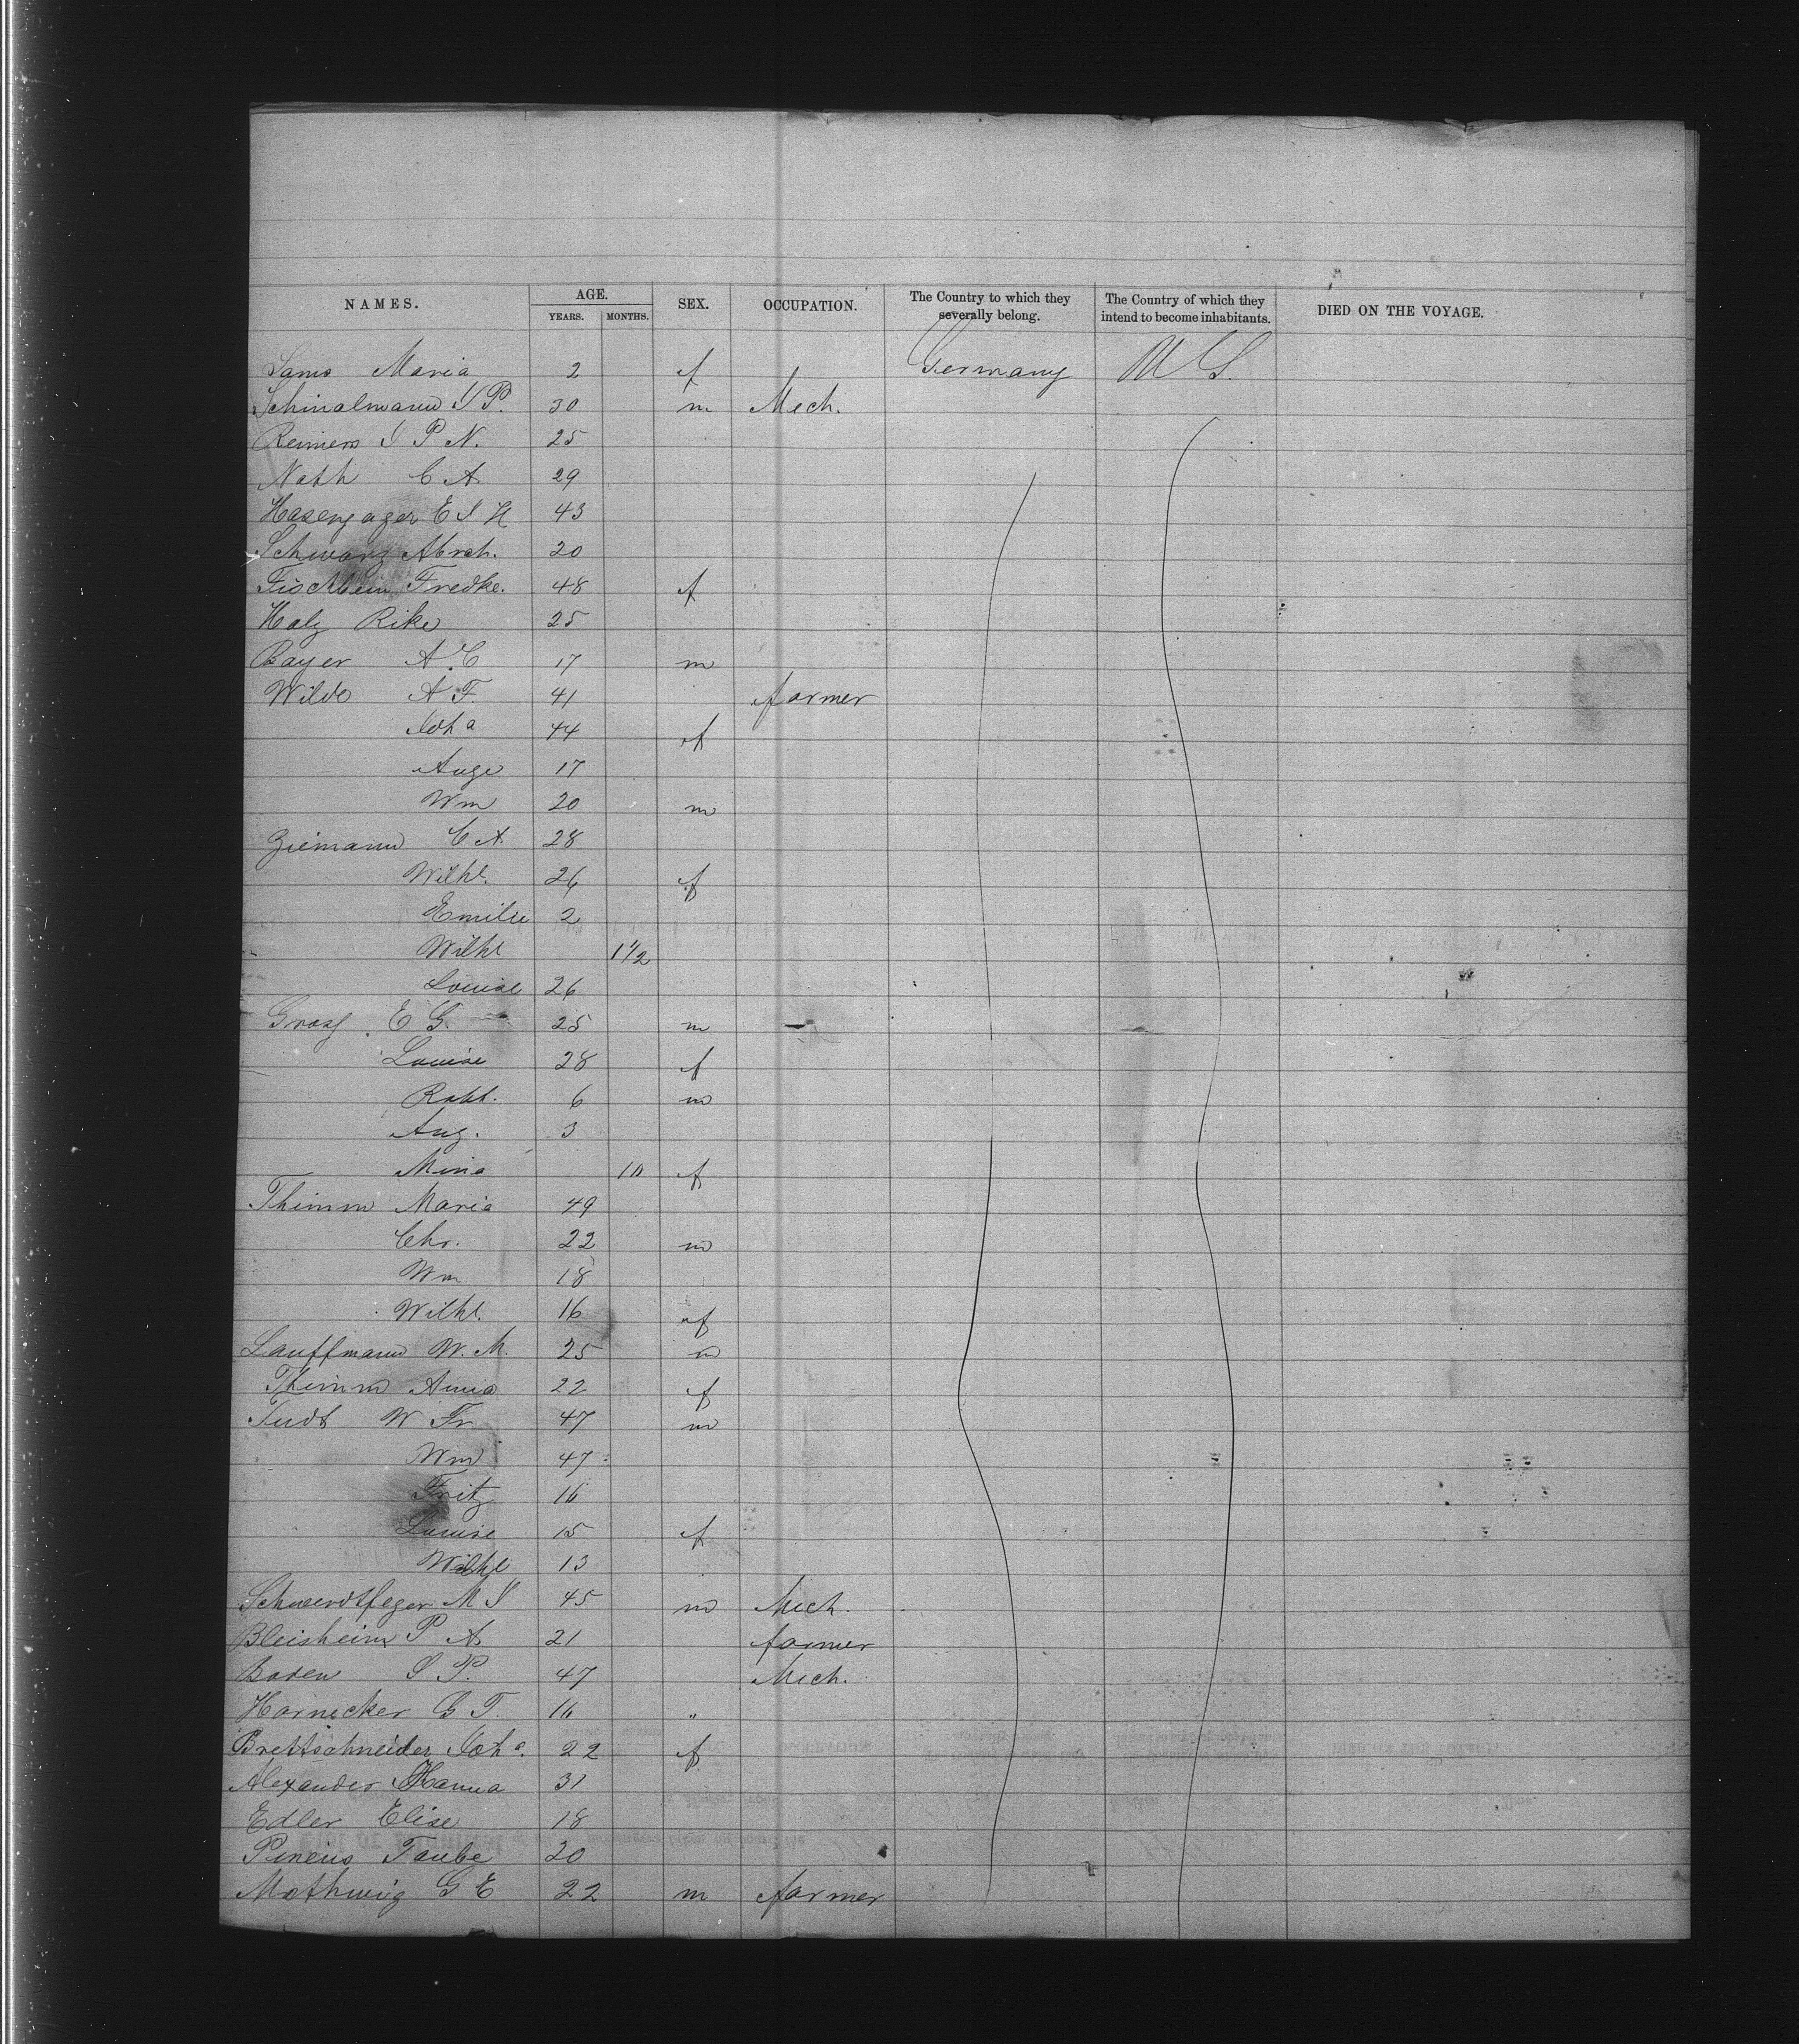 NAMES. AGE. SEX. OCCUPATION. The Country to which they severally belong. The Country of which they intend to become inhabitants. DIED ON THE VOYAGE.
YEARS. MONTHS.
Maria 2 f Germany U S.
30 m Mech.
Reimers J P N. 25
Nath C A 29
Hasenjager E J H 43
Schwarz Abrah. 20
Fischbein Fredke. 48 f
Holz Rike 25
Bayer A C 17 m
Wilde A F. 41 farmer
Joha 44 f
Auge 17
Wm 20 m
Ziemann C A. 28
Wilhl. 26 f
Emilie 2
Wilhl 1 1/2
Louise 26
E G. 25 m
Louise 28 f
Robt. 6 m
Aug. 3
Mina 10 f
Thimm Maria 49
Chr. 22 m
Wm 18
Wilhl. 16 f
Lauffmann W. M. 25 m
Thimm Anna 22 f
W Fr 47 m
Wm 47
Fritz 16
Louise 15 f
Wilhl 13
Schwerdtfeger M J 45 m Mech.
Bleisheim P A 21 farmer
Boden J P. 47 Mech.
Hornecker G T. 16 "
Brettschneider Joha. 22 f
Alexander Hanna 31
Edler Elise 18
Pincus Taube 20
Mothwig G E 22 m farmer